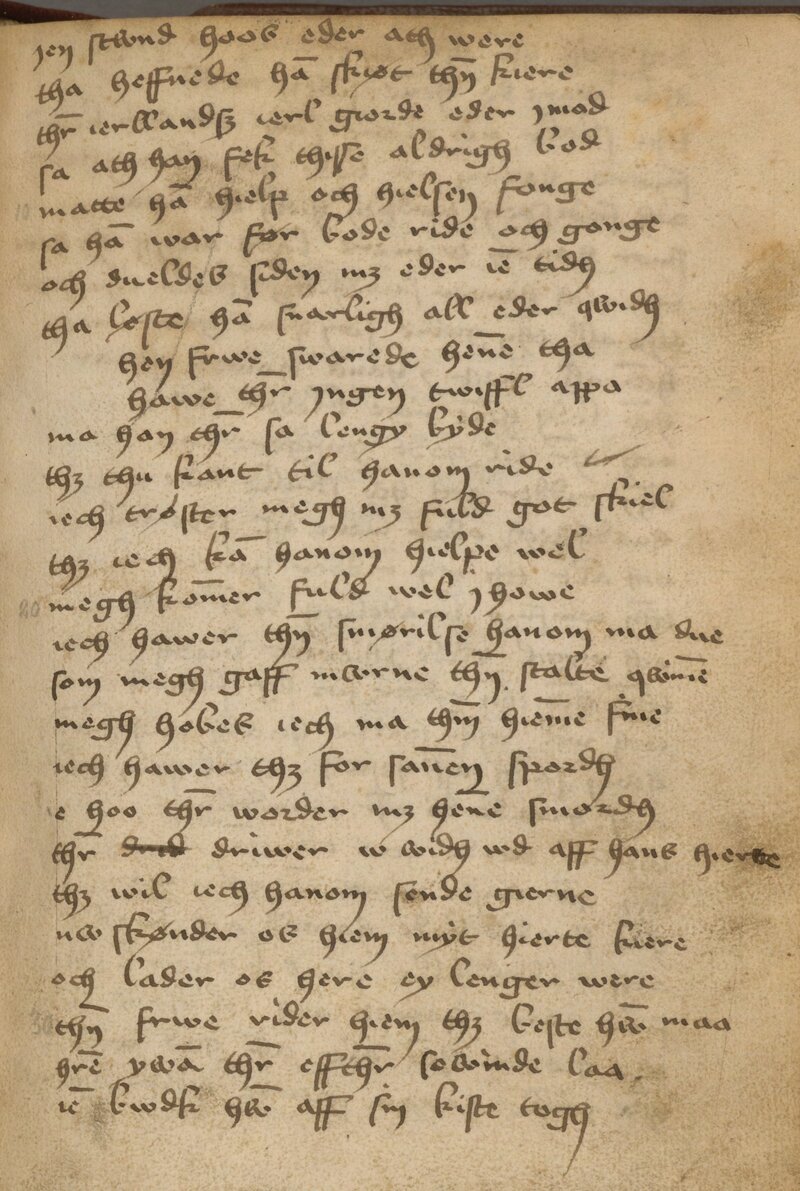 jen stwnd hoos eder ath were
tha heffnede hā skøt thn̄ kiere
thr̄ ierllandß ierl giorde eder jmod
sa ath han fek thisse aldrigh bod
matte hā hielp och hielsen fonge
sa hā war før bode ride och gonge
och dueldes siden mz eder iē tidh
tha løste hā snarligh all eder qwidh
hen frwe swarede hen̄e tha
hawe thr̄ jngen twiffl appa
ma han thr̄ sa lengy byde
thz thu kant til hanom ride
iech trøster megh mz fuld got skiel
thz iech kā hanom hielpe wel
megh kom̄er fuld wel j howe
iech hawer thn̄ smørilse hanom ma due
som megh gaff mworne thn̄ stalte qwin̄e
megh hobes iech ma thm̄ hiem̄e fin̄e
iech hawer thz for san̄en spordh
e hoo thr̄ worder mz hen̄e smordh
thr̄ driwer w widh wd aff hans hierne
thz wil iech hanom sende gierne
nw skønder os hiem myt hierte kiere
och lader os here ey lenger were
thn̄ frwe rider hiem thz beste hw̄ maa
hr̄e ywā thr̄ effthr̄ sowinde laa
iē bwdk hw̄ aff sin kiste togh